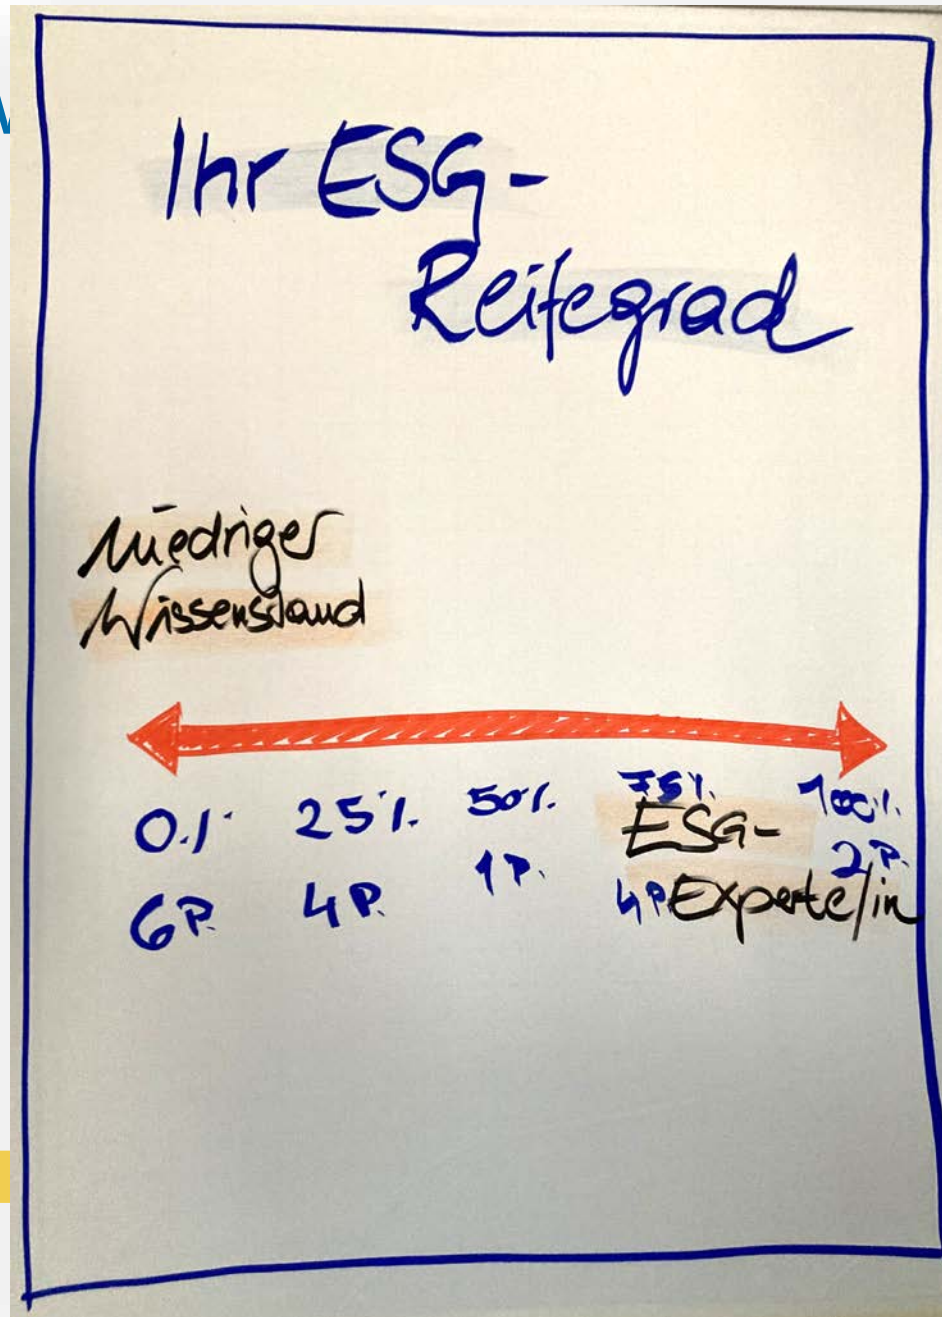 Ihr ESG-
Reifegrad
Niedriger
Wissensstand
0% 25% 50% 75% 100%
6P. 4P. 1P. 4P 2P.
ESG-
Experte/in